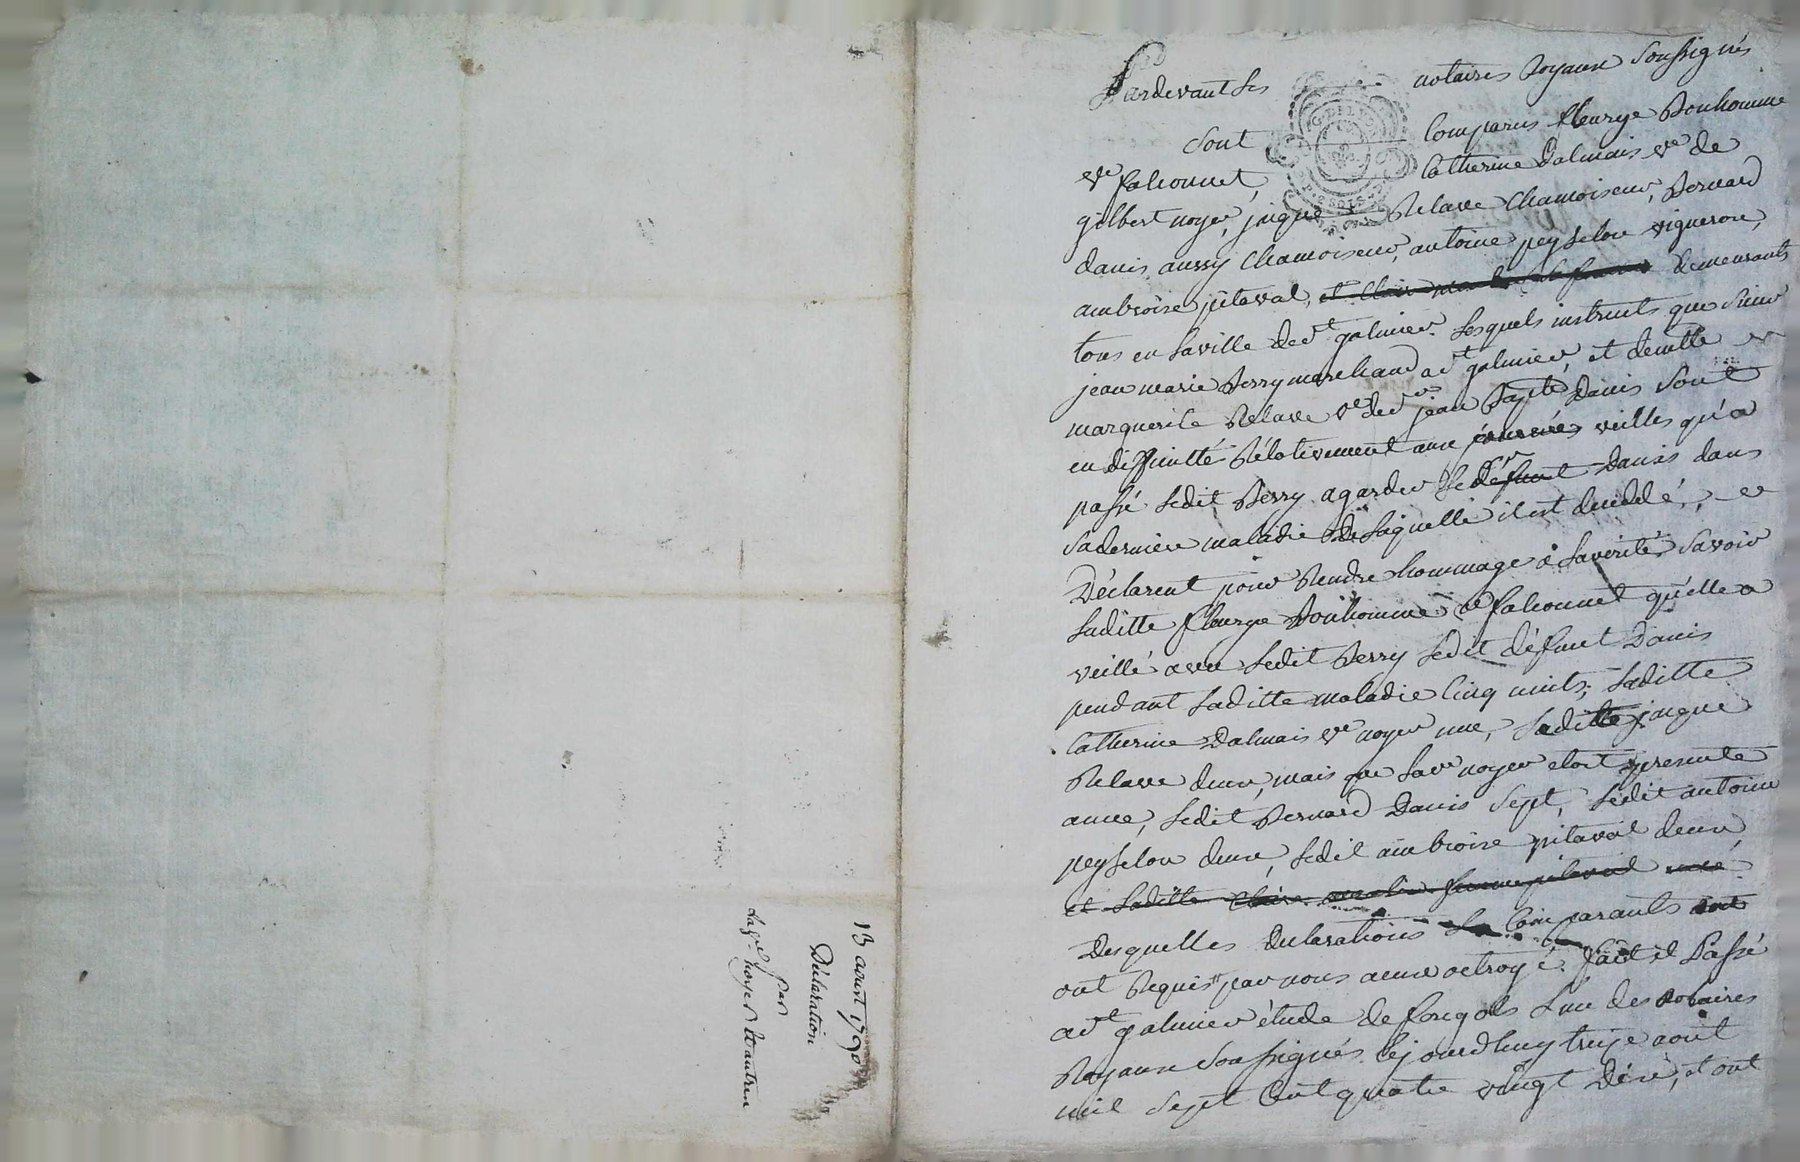 13 aoust 1790
Déclaration
par
la ve noyer et autres
Pardevant les notaires Royaux soussignés
sont comparus fleurye Bonhomme
ve falconnet, Catherine Dalmais ve de
gilbert noyer, jaque Relave chamoiseur, Bernard
danis aussy chamoiseur, antoine peyselon vigneron,
ambroise pitaval, demeurants
tous en la ville de st galmier. Lesquels instruits que sieur
jean marie Berry marchand a st galmier, et demlle
marguerite Relave ve de sr jean Bapte Danis sont
en difficulté Rélativement aux veilles qu'a
passé ledit Berry a garder le dt sr Danis dans
sa derniere maladie de laquelle il est décédé,
Déclarent pour Rendre hommage à la vérité, savoir
laditte fleurye Bonhomme ve falconnet qu'elle a
veillé avec ledit Berry ledit défunt Danis
pendant laditte maladie cinq nuits, laditte
Catherine Dalmais ve noyer une, ledit jaque
Relave deux, mais que la ve noyer etoit presente
a une, ledit Bernard Danis sept, ledit antoine
peyselon deux, ledit ambroise pitaval deux,
et laditte femme pitaval une
Desquelles déclarations les comparants
ont Requis par nous acte octroyé. fait et Passé
a st galmier étude de l'un des notaires
Royaux soussignés cejourd'huy treize août
mil sept cent quatre vingt dix, et ont